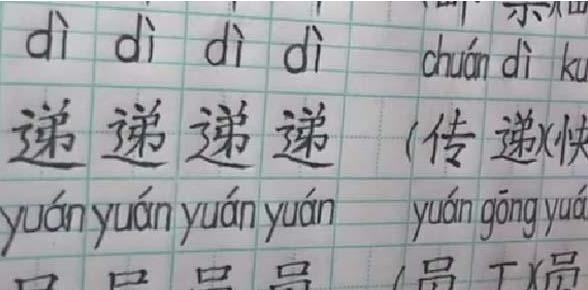 dì dì dì dì chuán dì
递 递 递 递 (传 递)(快
yuán yuán yuán yuán yuán gōng
员 员 员 员 (员 工)(员